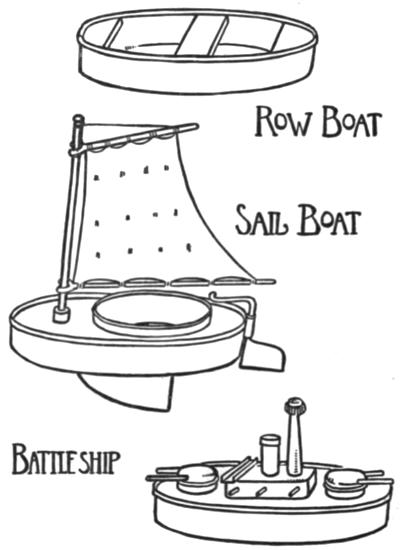 ROW BOAT
SAIL BOAT
BATTLESHIP